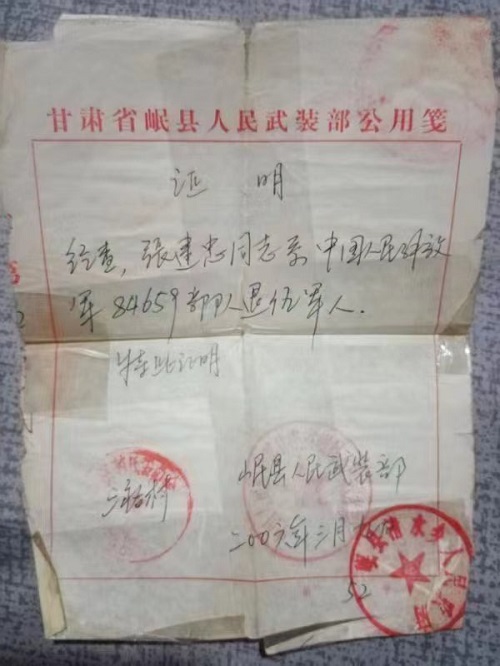 甘肃省岷县人民武装部公用笺
证 明
经查,张建忠同志系中国人民解放
军84659部队退伍军人.
特此证明
岷县人民武装部
二00六年三月
52